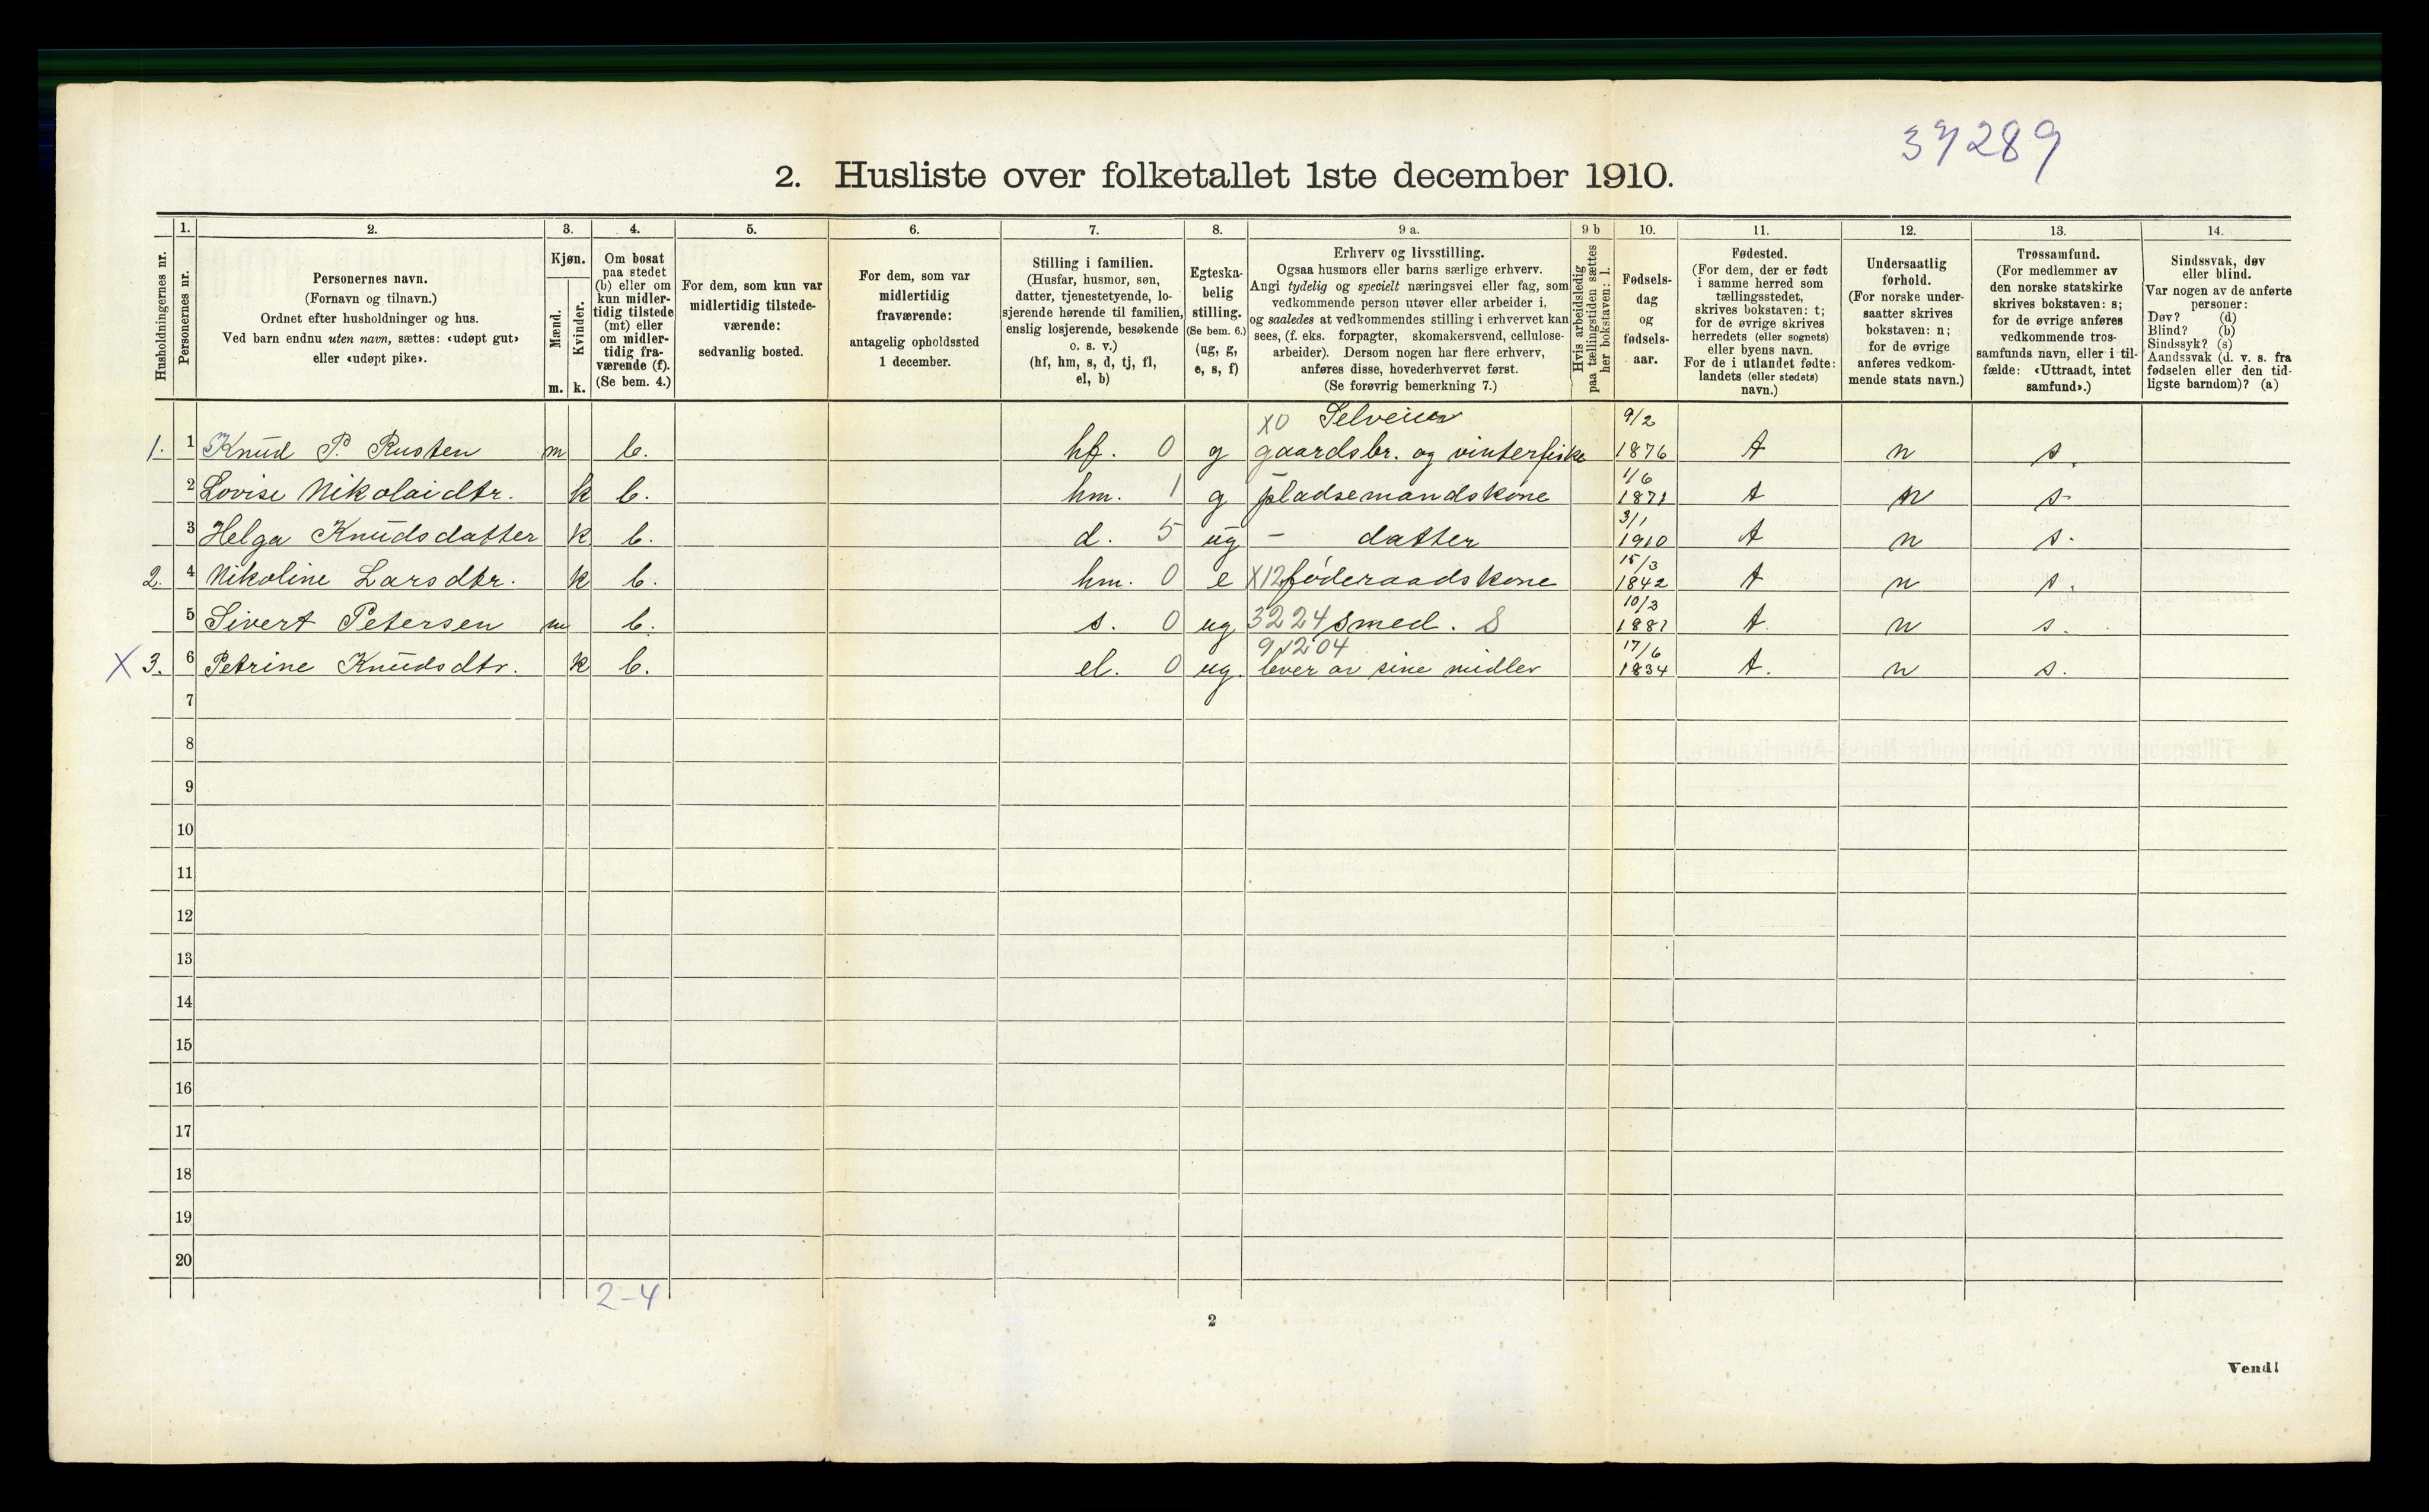 37289
2. Husliste over folketallet 1ste december 1910.
Husholdningernes nr.
1.
Personernes nr.
2.
Personernes navn.
(Fornavn og tilnavn.)
Ordnet efter husholdninger og hus.
Ved barn endnu uten navn, sættes: «udøpt gut»
eller «udøpt pike».
3.
Kjøn.
Mænd.
Kvinder.
m. k.
4.
Om bosat
paa stedet
(b) eller om
kun midler-
tidig tilstede
(mt) eller
om midler-
tidig fra-
værende (f).
(Se bem. 4.)
5.
For dem, som kun var
midlertidig tilstede-
værende:
sedvanlig bosted.
6.
For dem, som var
midlertidig
fraværende:
antagelig opholdssted
1 december.
7.
Stilling i familien.
(Husfar, husmor, søn,
datter, tjenestetyende, lo-
sjerende hørende til familien,
enslig losjerende, besøkende
o. s. v.)
(hf, hm, s, d, tj, fl,
el, b)
8.
Egteska-
belig
stilling.
(Se bem. 6.)
(ug, g,
e, s, f)
9 a.
Erhverv og livsstilling.
Ogsaa husmors eller barns særlige erhverv.
Angi tydelig og specielt næringsvei eller fag, som
vedkommende person utøver eller arbeider i,
og saaledes at vedkommendes stilling i erhvervet kan
sees, (f. eks. forpagter, skomakersvend, cellulose-
arbeider). Dersom nogen har flere erhverv,
anføres disse, hovederhvervet først.
(Se forøvrig bemerkning 7.)
9 b
Hvis arbeidsledig
paa tællingstiden sættes
her bokstaven: l.
10.
Fødsels-
dag
og
fødsels-
aar.
11.
Fødested.
(For dem, der er født
i samme herred som
tællingsstedet,
skrives bokstaven: t;
for de øvrige skrives
herredets (eller sognets)
eller byens navn.
For de i utlandet fødte:
landets (eller stedets)
navn.)
12.
Undersaatlig
forhold.
(For norske under-
saatter skrives
bokstaven: n;
for de øvrige
anføres vedkom-
mende stats navn.)
13.
Trossamfund.
(For medlemmer av
den norske statskirke
skrives bokstaven: s;
for de øvrige anføres
vedkommende tros-
samfunds navn, eller i til-
fælde: «Uttraadt, intet
samfund».)
14.
Sindssvak, døv
eller blind.
Var nogen av de anførte
personer:
Døv? (d)
Blind? (b)
Sindssyk? (s)
Aandssvak (d. v. s. fra
fødselen eller den tid-
ligste barndom)? (a)
X0 Selveier 9/2
1. 1 Knud P. Rusten m b. hf. 0 g gaardsbr. og vinterfiske 1876 t n s.
1/6
2 Lovise Nikolaidtr. k b. hm. 1 g pladsemandskone 1871 t n s.
3/1
3 Helga Knudsdatter k b. d. 5 ug - datter 1910 t n s.
15/3
2. 4 Nikoline Larsdtr. k b. hm. 0 e X12 føderaadskone 1842 t n s.
10/3
5 Sivert Petersen m b. s. 0 ug 3224 smed. S 1881 t n s.
91204 17/6
X 3. 6 Petrine Knudsdtr. k b. el. 0 ug. lever av sine midler 1834 t. n s.
7
8
9
10
11
12
13
14
15
16
17
18
19
20
2-4
2
Vend!